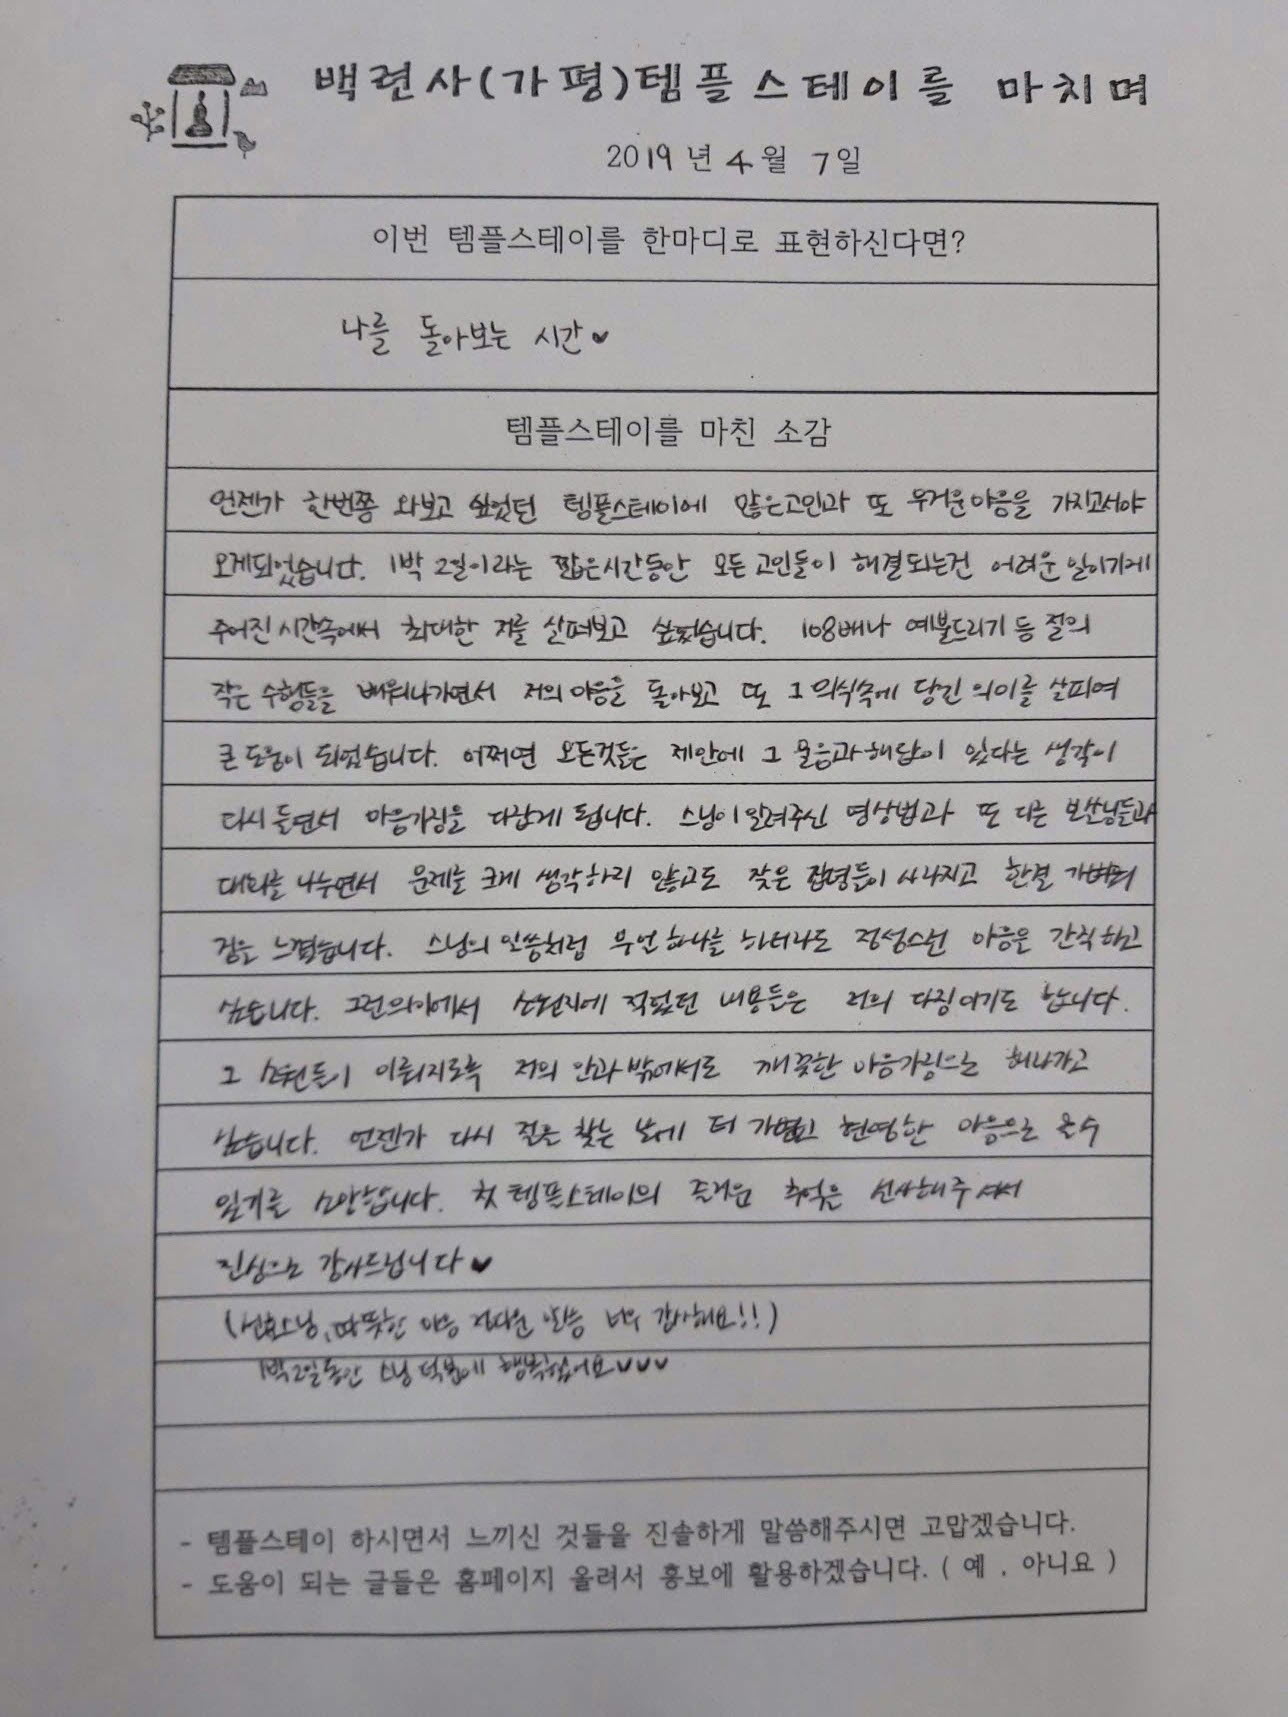 백련사(가평)템플스테이를 마치며
2019년 4월 7일
이번 템플스테이를 한마디로 표현하신다면?
나를 돌아보는 시간♥
템플스테이를 마친 소감
언젠가 한번쯤 와보고 싶었던 템플스테이에 많은고민과 또 무거운마음을 가지고서야
오게되었습니다. 1박 2일이라는 짧은시간동안 모든 고민들이 해결되는건 어려운 일이기에
주어진 시간속에서 최대한 저를 살펴보고 싶었습니다. 108배나 예불드리기 등 절의
작은 수행들을 배워나가면서 저의 마음을 돌아보고 또 그 의식속에 담긴 의미를 살피며
큰 도움이 되었습니다. 어쩌면 모든것들은 제안에 그 물음과 해답이 있다는 생각이
다시 들면서 마음가짐을 다잡게 됩니다. 스님이 알려주신 명상법과 또 다른 보살님들과
대화를 나누면서 문제를 크게 생각하지 않고도 잦은 잡념들이 사라지고 한결 가벼워
짐을 느꼈습니다. 스님의 말씀처럼 무언 하나를 하더라도 정성스런 마음은 간직하고
싶습니다. 그런의미에서 소원지에 적었던 내용들은 저의 다짐이기도 합니다.
그 소원들이 이뤄지도록 저의 안과 밖에서도 깨끗한 마음가짐으로 해나가고
싶습니다. 언젠가 다시 절을 찾는 날에 더 가볍고 현명한 마음으로 올수
있기를 소망합니다. 첫 템플스테이의 즐거운 추억을 선사해주셔서
진심으로 감사드립니다♥
(선효스님, 따뜻한 마음 정다운 말씀 너무 감사해요!!)
1박2일동안 스님 덕분에 행복했어요♥♥♥
- 템플스테이 하시면서 느끼신 것들을 진솔하게 말씀해주시면 고맙겠습니다.
- 도움이 되는 글들은 홈페이지 올려서 홍보에 활용하겠습니다. ( 예 . 아니요 )